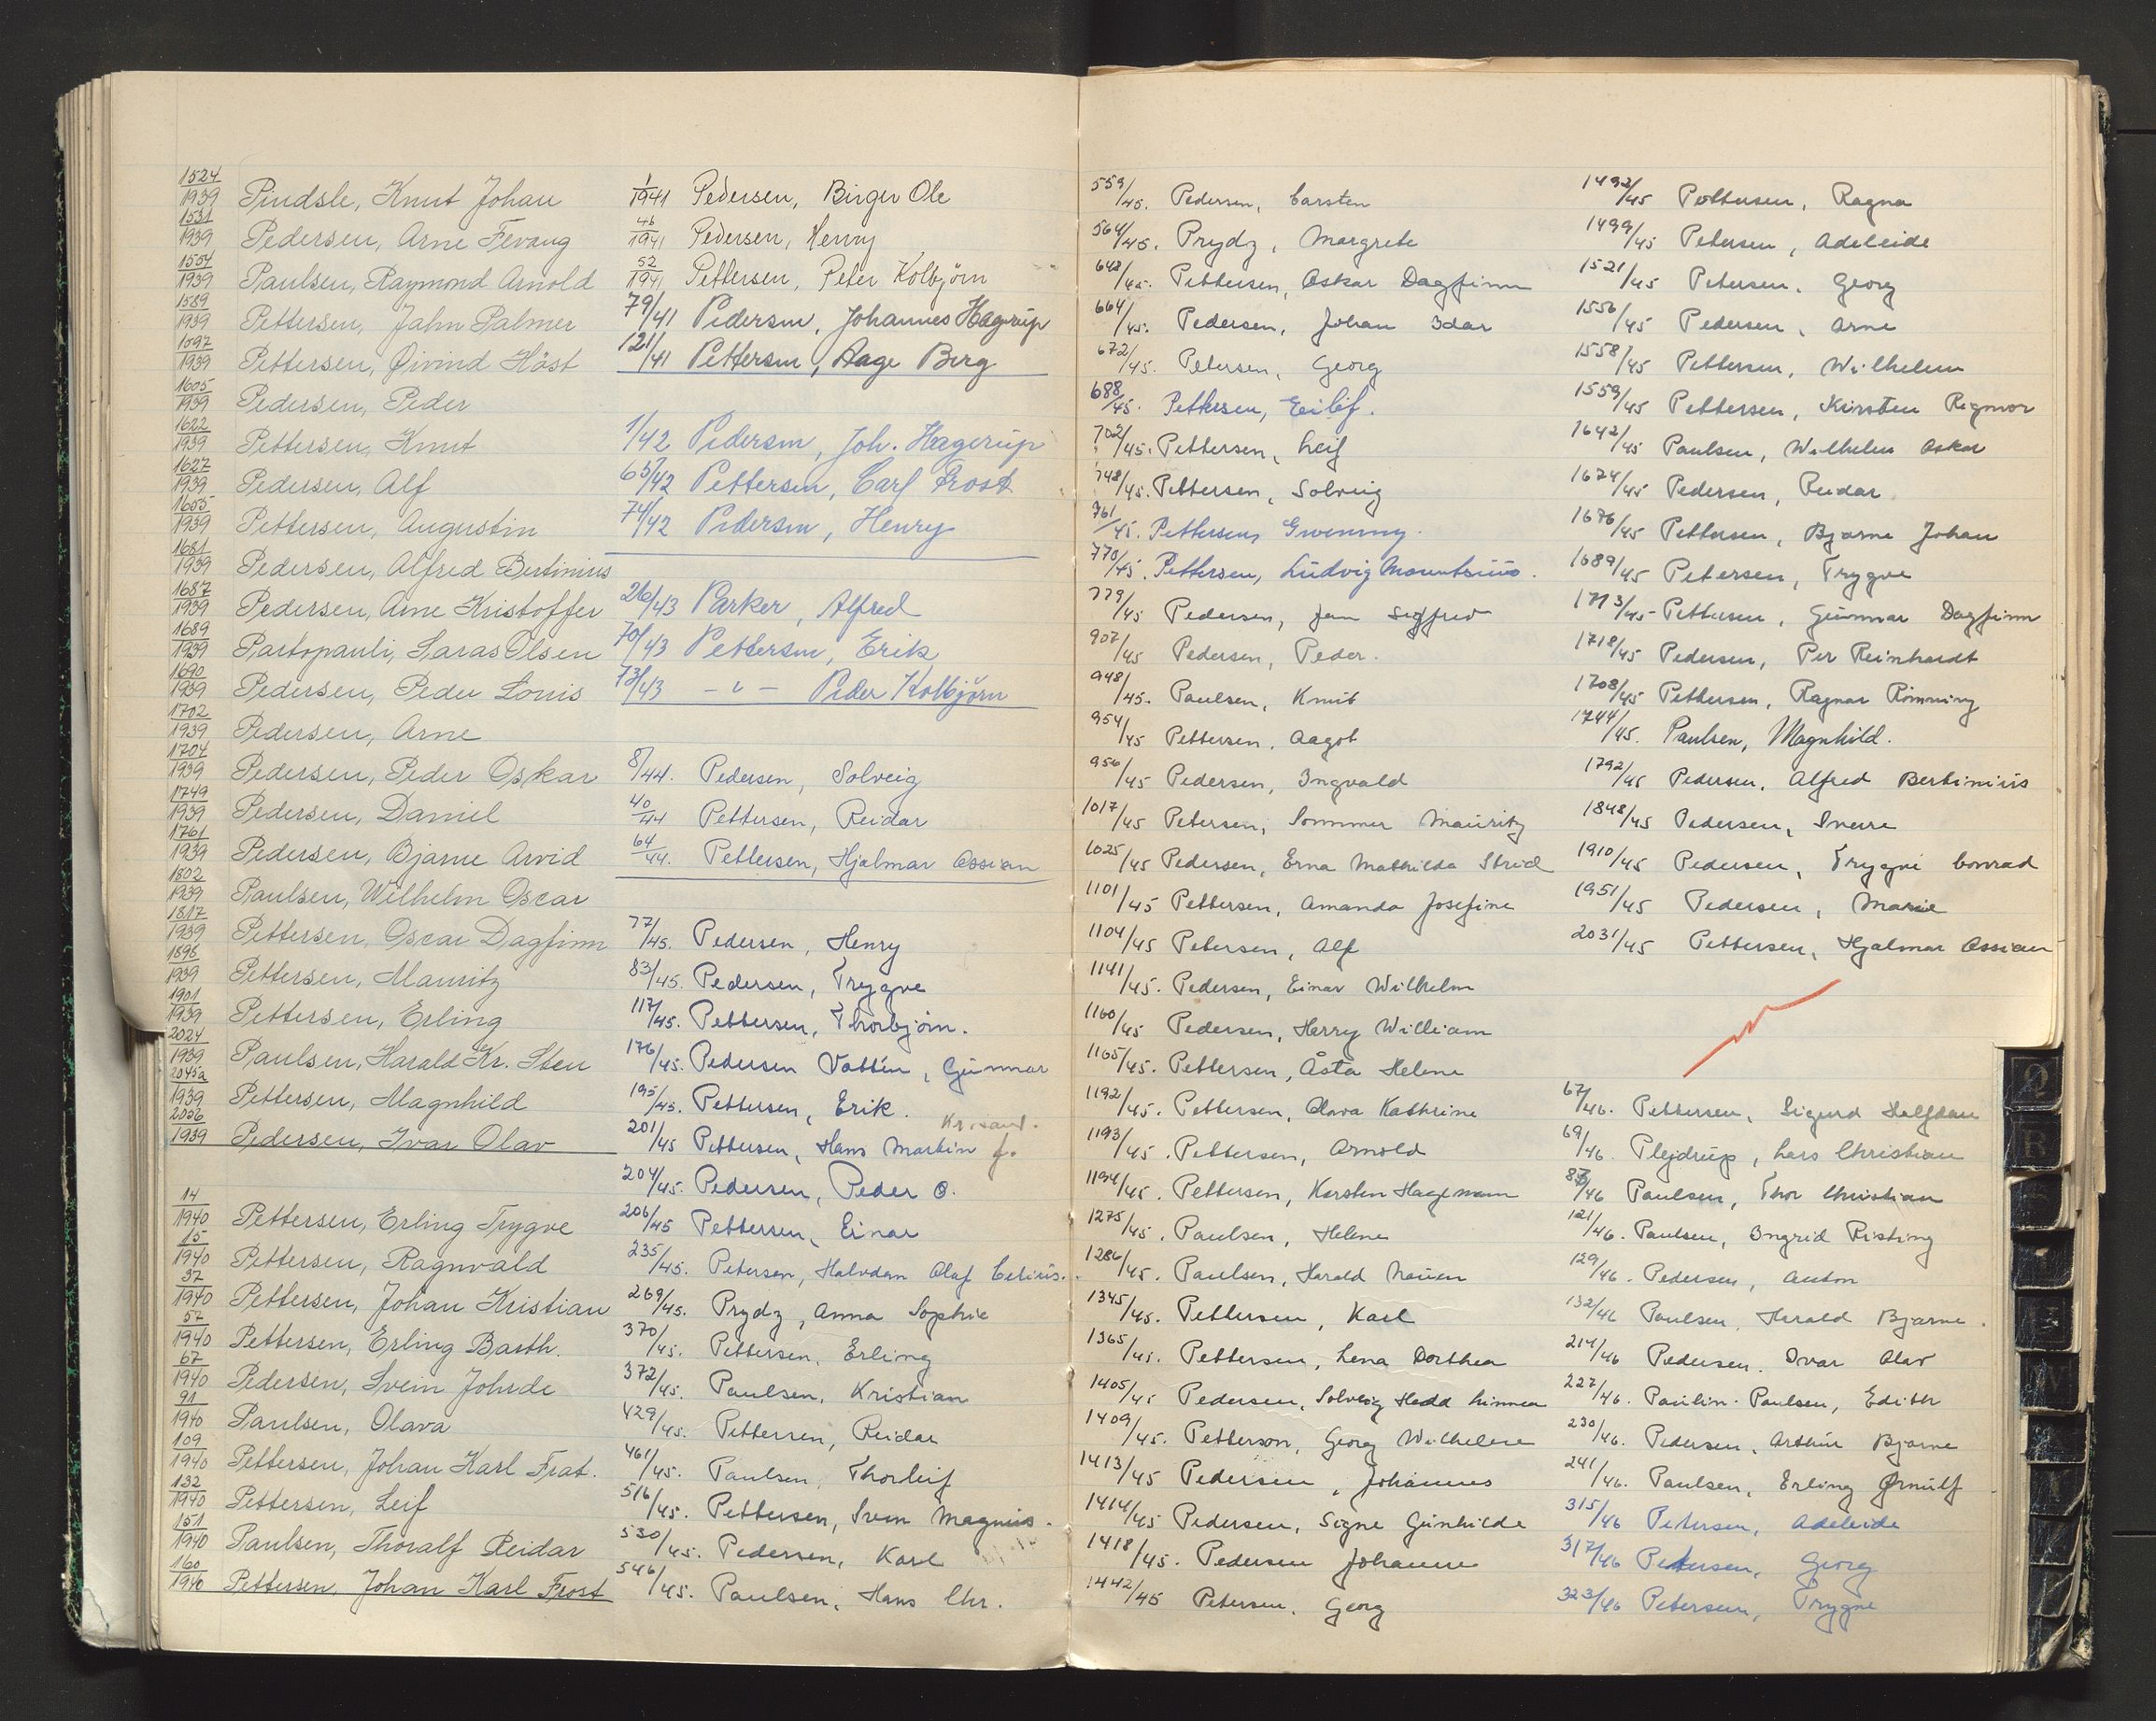 1524/1939 Pindsle, Knut Johan
1531/1939 Pedersen, Arne Fevang
1554/1939 Paulsen, Raymond Arnold
1589/1939 Pettersen, Jahn Palmer
1597/1939 Pettersen, Øivind Häst
1605/1939 Pedersen, Peder
1622/1939 Pettersen, Knut
1627/1939 Pedersen, Alf
1655/1939 Pettersen, Augustin
1681/1939 Pedersen, Alfred Bertinius
1687/1939 Pedersen, Arne Kristoffer
1689/1939 Partopauli, Laras Olsen
1690/1939 Pedersen, Peder Louis
1702/1939 Pedersen, Arne
1704/1939 Pedersen, Peder Oskar
1749/1939 Pedersen, Daniel
1761/1939 Pedersen, Bjarne Arvid
1802/1939 Paulsen, Wilhelm Oscar
1817/1939 Pettersen, Oscar Dagfinn
1896/1939 Pettersen, Mauritz
1901/1939 Pettersen, Erling
2024/1939 Paulsen, Harald Kr. Sten
2045a/1939 Pettersen, Magnhild
2056/1939 Pedersen, Ivar Olav
14/1940 Pettersen, Erling Trygve
15/1940 Pettersen, Ragnvald
37/1940 Pettersen, Johan Kristian
57/1940 Pettersen, Erling Barth.
67/1940 Pedersen, Svein Johrde
91/1940 Paulsen, Olava
109/1940 Pettersen, Johan Karl Frat.
132/1940 Pettersen, Leif
151/1940 Paulsen, Thoralf Reidar
160/1940 Pettersen, Johan Karl Frost
1/1941 Pedersen, Birger Ole
46/1941 Pedersen, Henry
52/1941 Pettersen, Peter Kolbjörn
79/41 Pedersen, Johannes Hagerup
121/41 Pettersen, Aage Berg
1/42 Pedersen, Joh. Hagerup
65/42 Pettersen, Carl Frost
74/42 Pedersen, Henry
26/43 Parker, Alfred
70/43 Pettersen, Erik
73/43 - " - Peder Kolbjörn
8/44. Pedersen, Solveig
40/44 Pettersen, Reidar
64/44. Pettersen, Hjalmar Ossian
77/45. Pedersen, Henry
83/45. Pedersen, Trygve
117/45. Pettersen, Thorbjörn.
176/45. Pedersen Vattén, Gunnar
195/45. Pettersen, Erik.
Krisand.
201/45 Pettersen, Hans Martin f.
204/45. Pedersen, Peder O.
206/45 Pettersen, Einar
235/45. Petersen, Halvdan Olaf Celius.
269/45. Prydz, Anna Sophie
370/45. Pettersen, Erling
372/45. Paulsen, Kristian
429/45. Pettersen, Reidar
461/45. Paulsen, Thorleif
516/45. Pettersen, Svein Magnus.
530/45. Pedersen, Karl
546/45. Paulsen, Hans Chr.
559/45. Pedersen, Carsten
564/45. Prydz, Margrete
648/45. Pettersen, Oskar Dagfinn
664/45. Pedersen, Johan Idar
672/45. Petersen, Georg
688/45. Pettersen, Eilif.
702/45. Pettersen, Leif
748/45. Pettersen, Solveig
761/45. Pettersen, Gwenny.
770/45. Pettersen, Ludvig Mauritsius.
779/45 Pedersen, Jan Sigfred
907/45 Pedersen, Peder.
948/45. Paulsen, Knut
954/45 Pettersen, Aagot
956/45 Pedersen, Ingvald
1017/45 Petersen, Sommer Mauritz
1025/45 Pedersen, Erna Mathilda Strid
1101/45 Pettersen, Amanda Josefine
1104/45 Petersen, Alf
1141/45. Pedersen, Einar Wilhelm
1160/45 Pedersen, Harry William
1165/45. Pettersen, Åsta Helene
1192/45. Pettersen, Olava Kathrine
1193/45. Pettersen, Arnold
1194/45. Pettersen, Karsten Hagemann
1275/45. Paulsen, Helene
1286/45. Paulsen, Harald Nauen
1345/45. Pettersen, Karl
1365/45. Pettersen, Lena Dorthea
1405/45 Pedersen, Solveig Hedd Linnea
1409/45. Petterson, Georg Wilhelm
1413/45 Pedersen, Johannes
1414/45 Pedersen, Signe Gunhilde
1418/45. Pedersen Johanne
1442/45 Petersen, Georg
1492/45 Pettersen, Ragna
1499/45 Petersen, Adeleide
1521/45 Petersen, Georg
1556/45 Pedersen, Arne
1558/45 Pettersen, Wilhelm
1559/45 Pettersen, Kirsten Rigmor
1642/45 Paulsen, Wilhelm Oskar
1674/45 Pedersen, Reidar
1676/45 Pettersen, Bjarne Johan
1689/45 Petersen, Trygve
1713/45 Pettersen, Gunnar Dagfinn
1718/45 Pedersen, Per Reinhardt
1708/45 Pettersen, Ragnar Rönning
1744/45. Paulsen, Magnhild.
1792/45 Pedersen, Alfred Bertinius
1848/45 Pedersen, Sverre
1910/45 Pedersen, Trygve Conrad
1951/45 Pedersen, Marie
2031/45 Pettersen, Hjalmar Ossian
67/46. Pettersen, Sigurd Halfdan
69/46. Plejdrup, Lars Christian
83/46 Paulsen, Thor Christian
121/46. Paulsen, Ingrid Risting
129/46. Pedersen, Anton
132/46 Paulsen, Harald Bjarne.
214/46 Pedersen. Ivar Olav
227/46. Paulin-Paulsen, Edith
230/46. Pedersen, Arthur Bjarne
241/46. Paulsen, Erling Ørnulf
315/46 Petersen, Adeleide
317/46 Petersen, Georg
323/46 Petersen, Trygve
Q
R